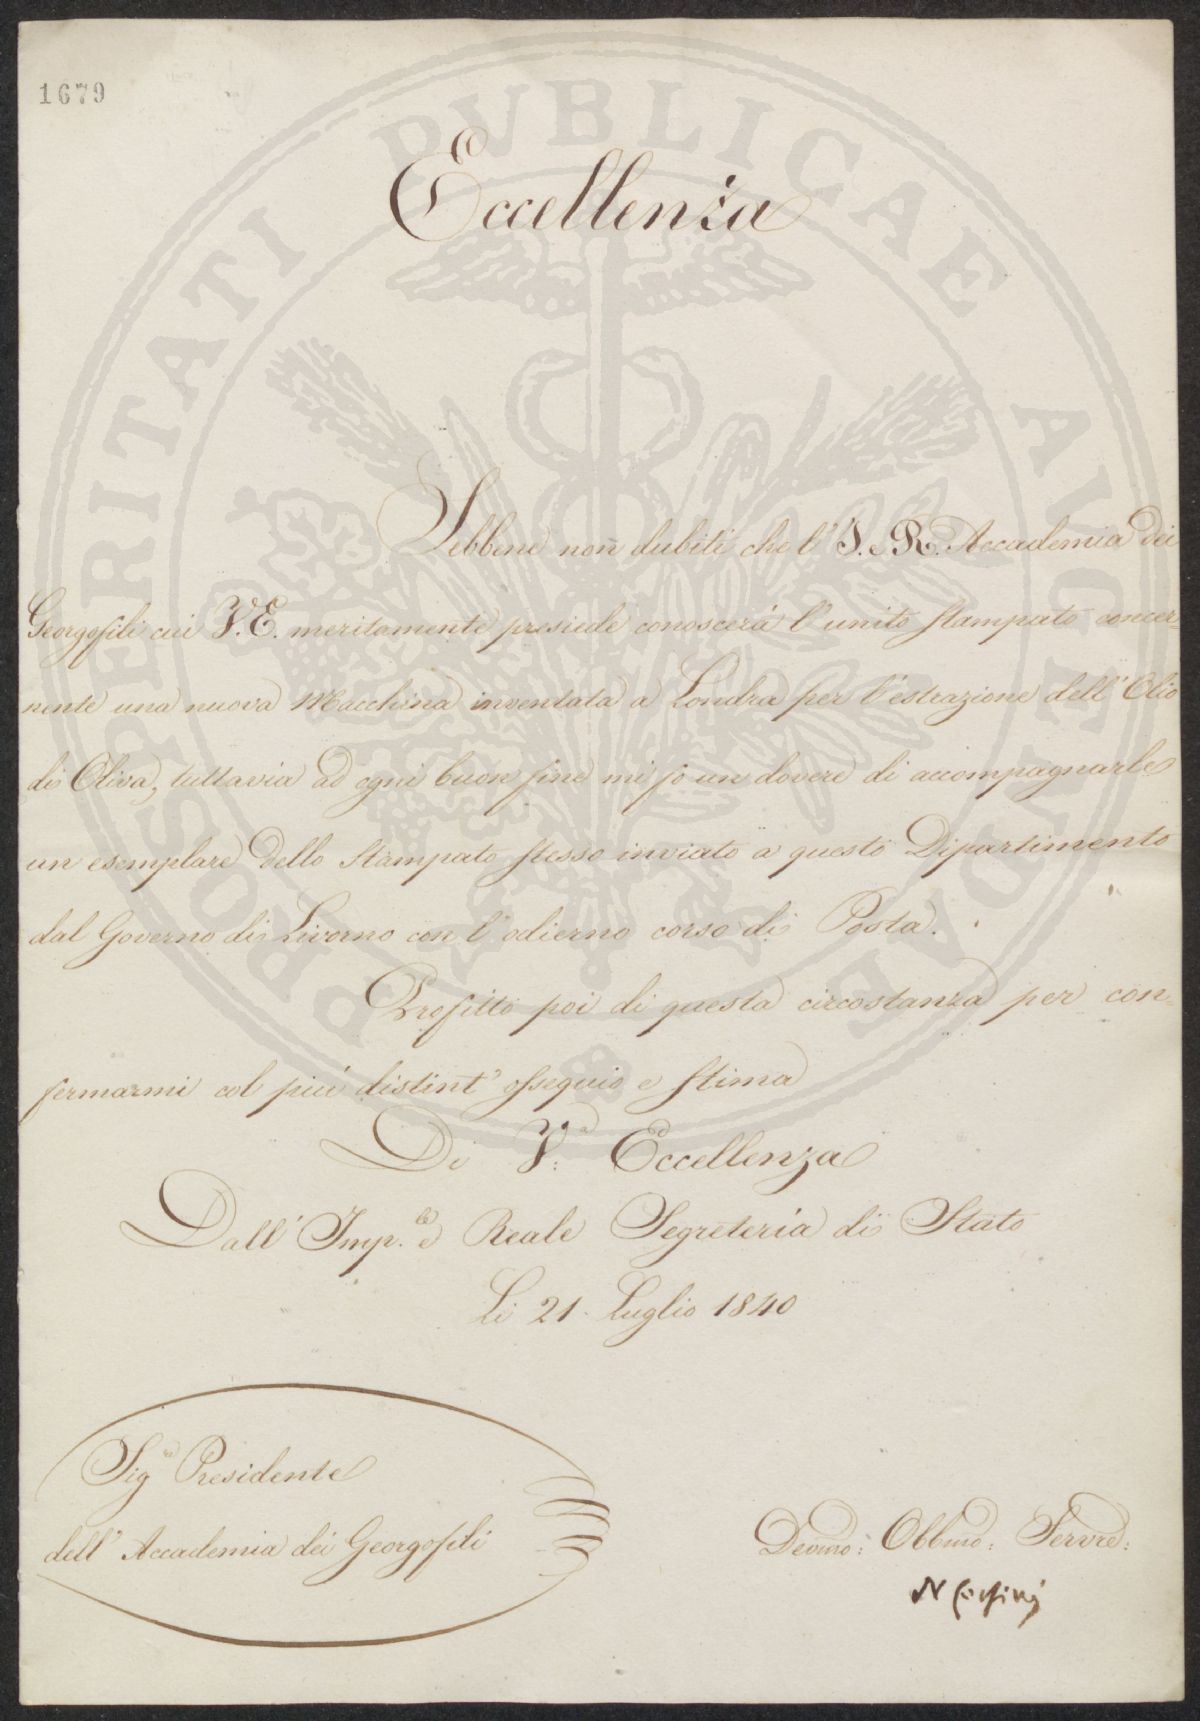 1679
Eccellenza
Sebbene non dubiti che l'I. e R. Accademia dei
Georgofili cui V. E. meritamente presiede conoscerà l'unito Stampato concer-
nente una nuova Macchina inventata a Londra per l'estrazione dell'Olio
di Oliva, tuttavia ad ogni buon fine mi fo un dovere di accompagnarle
un esemplare dello Stampato stesso inviato a questo Dipartimento
dal Governo di Livorno con l'odierno corso di Posta.
Profitto poi di questa circostanza per con-
fermarmi col più distint' ossequio e stima
Di V.a Eccellenza
Dall' Imp.le e Reale Segreteria di Stato
Li 21. Luglio 1840
Sig.e Presidente
dell' Accademia dei Georgofili
Devmo: Obbmo: Servre:
N Corsini
PROSPERITATI PVBLICAE AVGENDAE